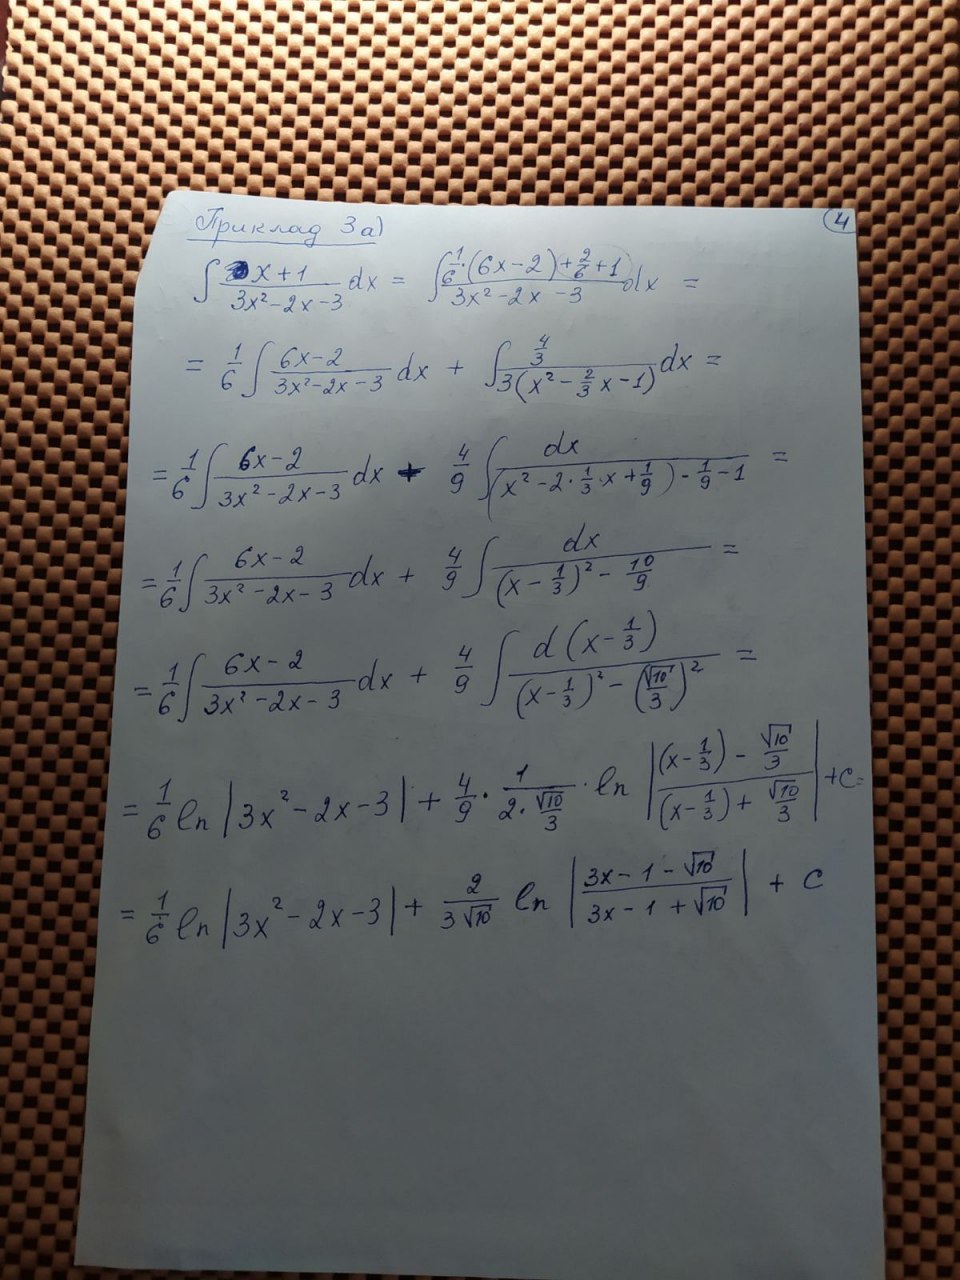 4
Приклад 3а)
∫ (x+1)/(3x²-2x-3) dx = ∫ (1/6·(6x-2)+2/6+1)/(3x²-2x-3) dx =
= 1/6 ∫ (6x-2)/(3x²-2x-3) dx + ∫ (4/3)/(3(x²-2/3x-1)) dx =
= 1/6 ∫ (6x-2)/(3x²-2x-3) dx + 4/9 ∫ dx/((x²-2·1/3·x+1/9)-1/9-1) =
= 1/6 ∫ (6x-2)/(3x²-2x-3) dx + 4/9 ∫ dx/((x-1/3)²-10/9) =
= 1/6 ∫ (6x-2)/(3x²-2x-3) dx + 4/9 ∫ d(x-1/3)/((x-1/3)²-(√10/3)²) =
= 1/6 ln|3x²-2x-3| + 4/9·1/(2·√10/3)·ln|((x-1/3)-√10/3)/((x-1/3)+√10/3)|+c=
= 1/6 ln|3x²-2x-3|+ 2/(3√10) ln|(3x-1-√10)/(3x-1+√10)| + c